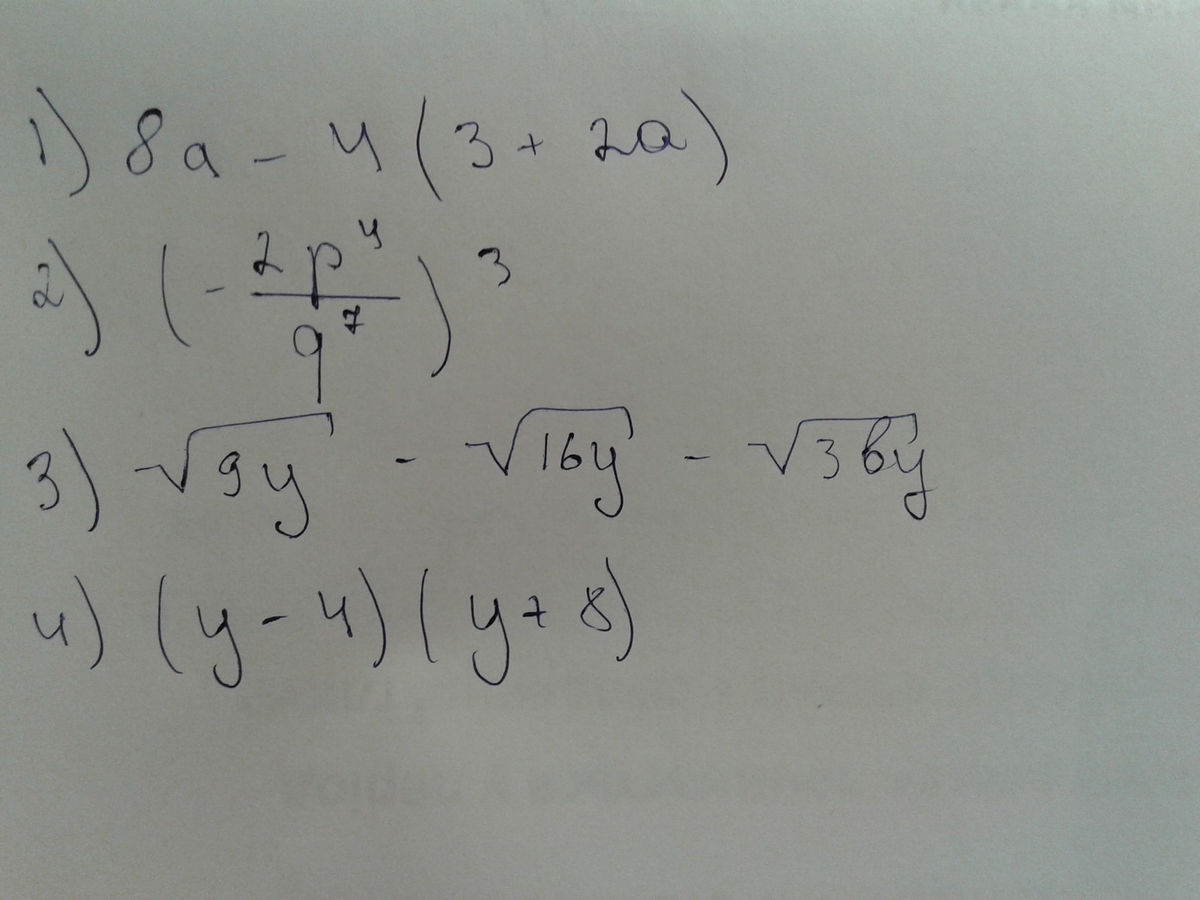 1) 8a - 4 (3 + 2a)
2) (- 2p⁴ / q⁷)³
3) √9y - √16y - √36y
4) (y - 4) (y + 8)